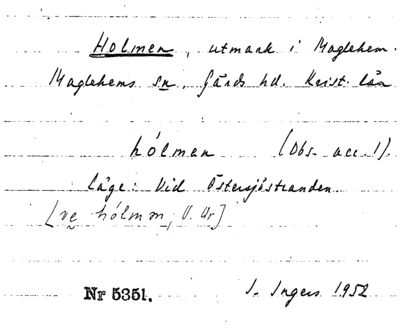 Holmen, utmark i Maglehem.
Maglehems sn, Gärds hd. Krist. län
hólmen (Obs. acc. 1).
läge: Vid Östersjöstranden
[ve hólmm, V. Vr]
Nr 5351. I. Ingers 1952